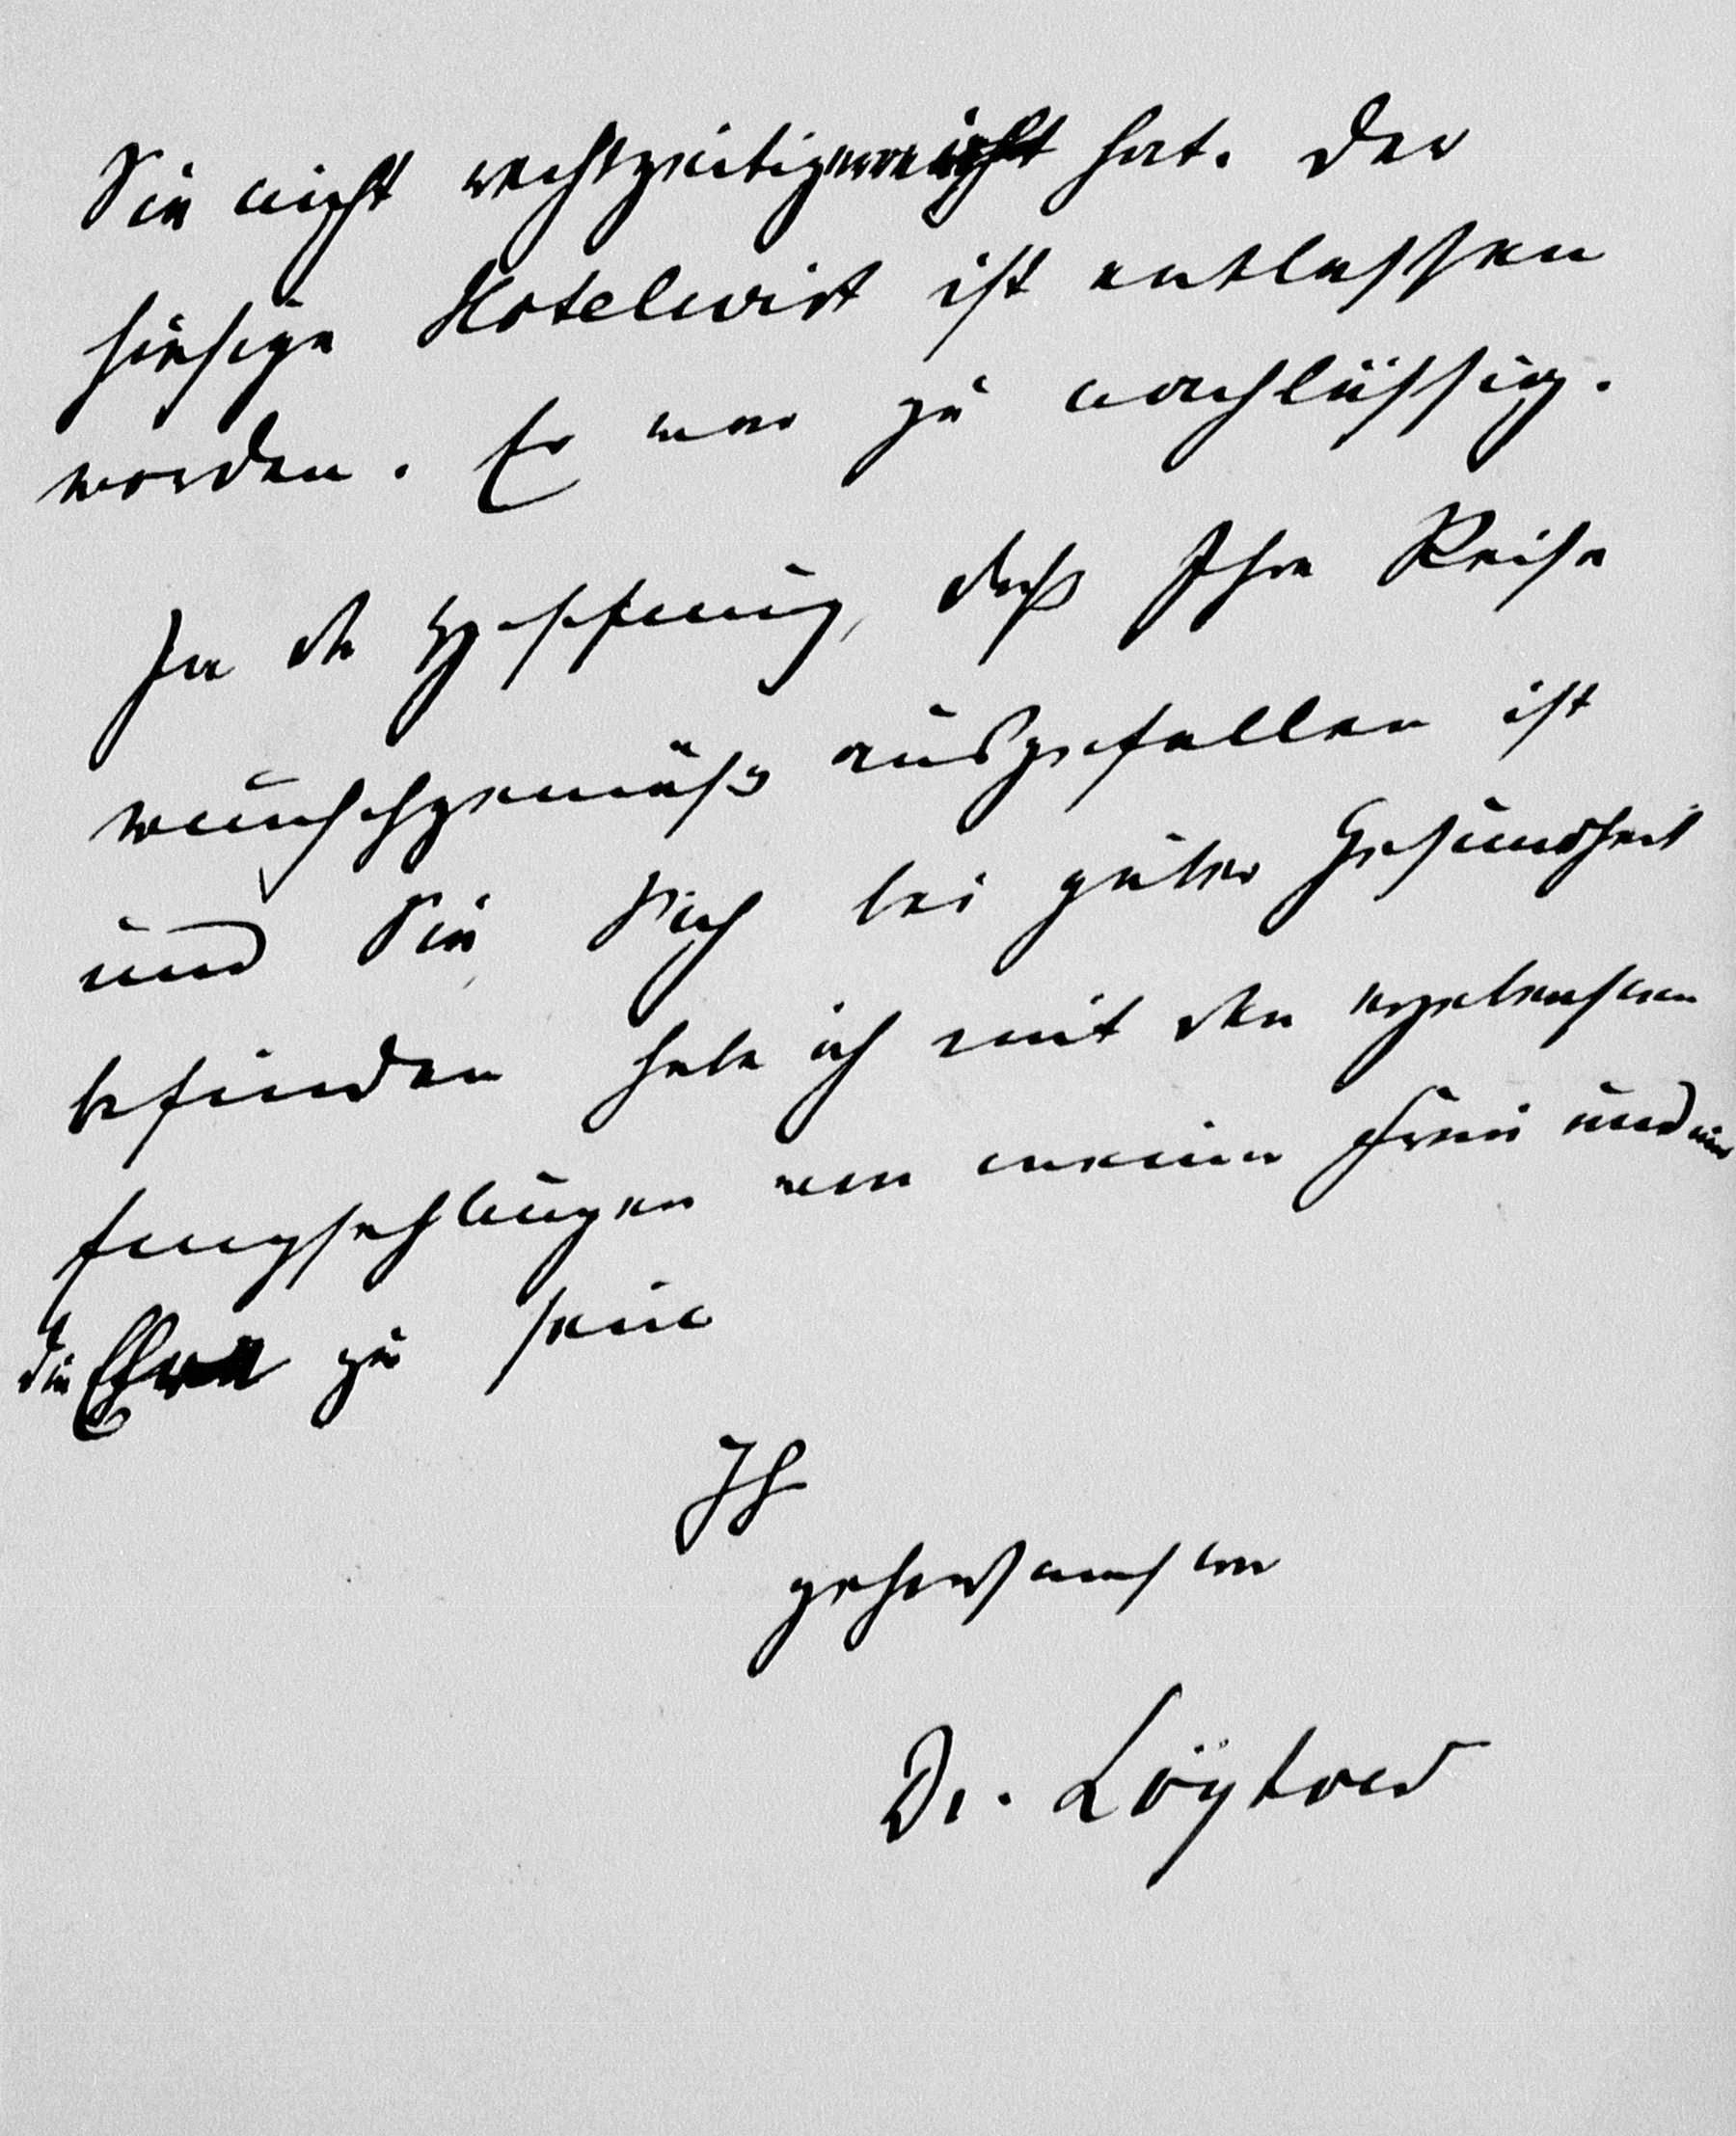 Sie nicht rechtzeitig erreicht hat. Der
hiesige Hotelwirt ist entlassen
worden. Er war zu nachlässig.
In der Hoffnung, daß Ihre Reise
wunschgemäß ausgefallen ist
und Sie Sich bei guter Gesundheit
befinden habe ich mit den ergebensten
Empfehlungen von meiner Frau und mir
die Ehre zu sein
Ihr
gehorsamster
Dr. Löytved